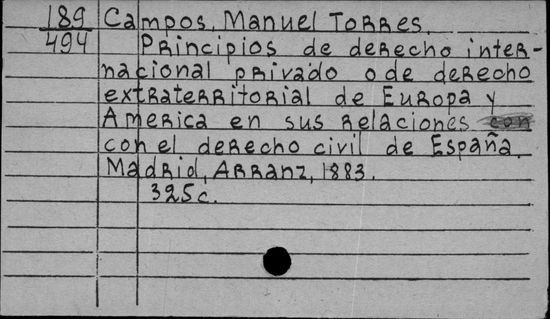 189 Campos, Manuel Torres.
494 Principios de derecho inter-
nacional privado o de derecho
extraterritorial de Europa y
America en sus relaciones con
con el derecho civil de España.
Madrid, Arranz, 1883.
325c.